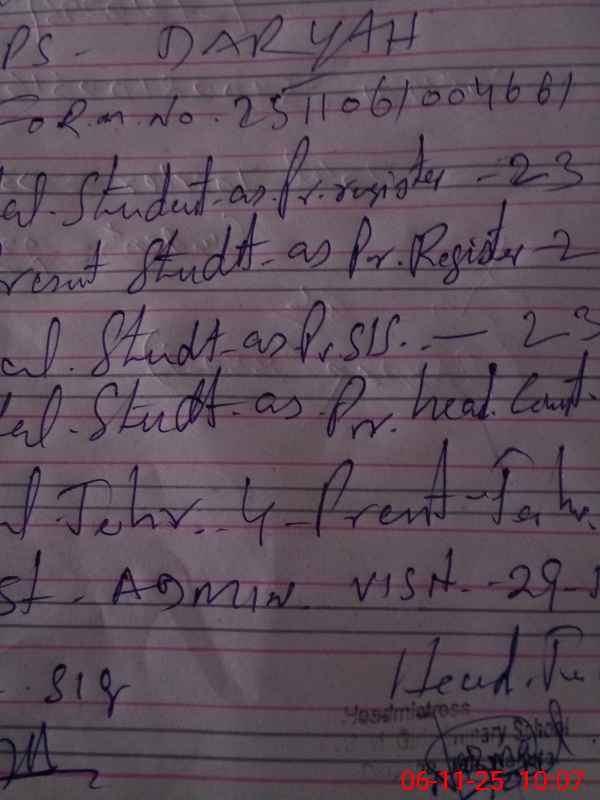 PS - DARYAH
FoRm. No. 2511061004661
al. Student. as. Pr. register - 23
resent Studt. as Pr. Register - 2
al. Studt. as Pr. SIS. - 23
al. Studt. as. Pr. head. Count.
l. Tehr. 4 - Prent - Tehr.
st - ADMIN. VISIT. - 29-
. sig
Head. Te
Headmistress
mary School
06-11-25 10:07